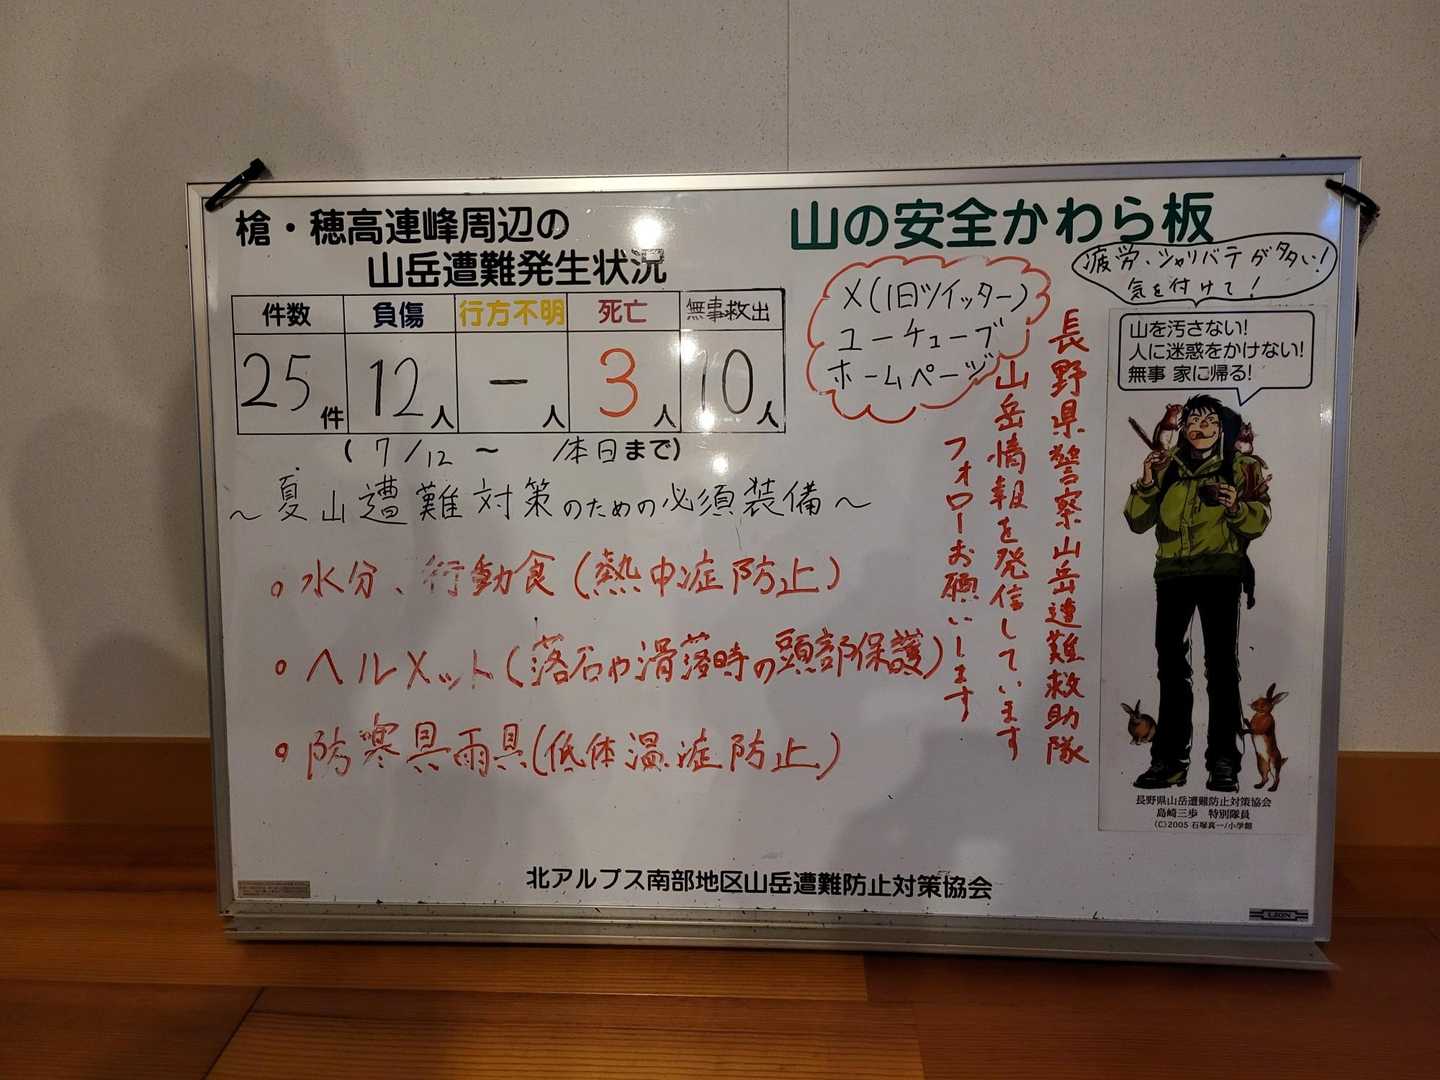 槍・穂高連峰周辺の
山岳遭難発生状況
件数 負傷 行方不明 死亡 無事救出
25件 12人 ー人 3人 10人
(7/12 ~ /本日まで)
~夏山遭難対策のための必須装備~
。水分、行動食(熱中症防止)
。ヘルメット(落石や滑落時の頭部保護)
。防寒具雨具(低体温症防止)
山の安全かわら板
X(旧ツイッター)
ユーチューブ
ホームページ
長野県警察山岳遭難救助隊
山岳情報を発信しています
フォローお願いします
疲労、シャリバテが多い!
気を付けて!
山を汚さない!
人に迷惑をかけない!
無事 家に帰る!
長野県山岳遭難防止対策協会
島崎三歩 特別隊員
(C)2005 石塚真一/小学館
北アルプス南部地区山岳遭難防止対策協会
LION